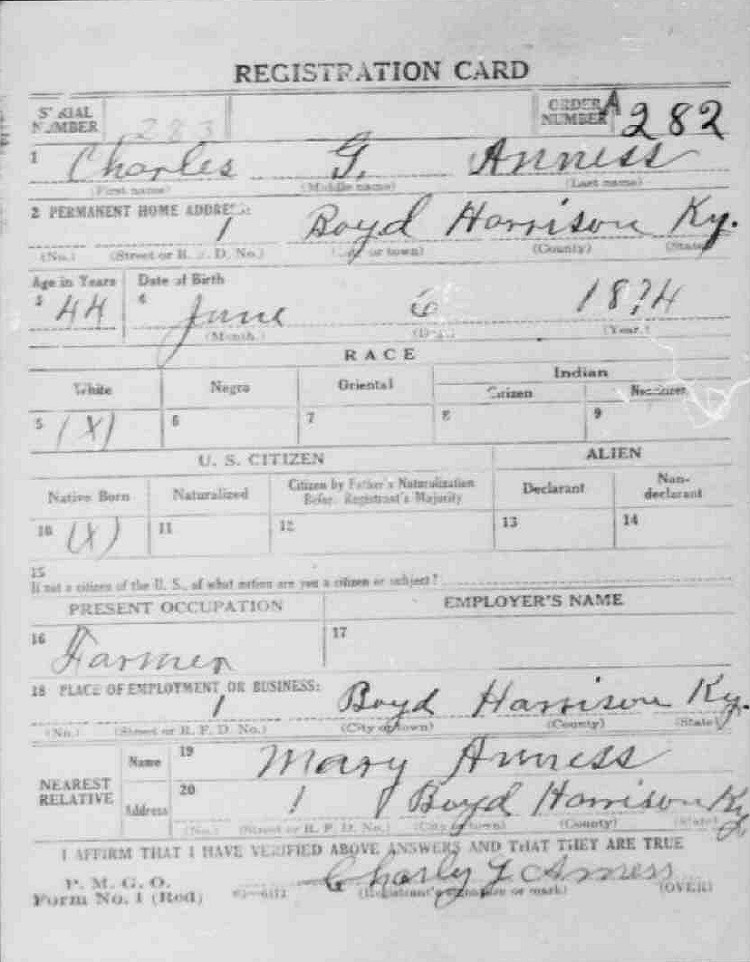 REGISTRATION CARD
SERIAL NUMBER 283 ORDER NUMBER A 282
1 Charles G. Anness
(First name) (Middle name) (Last name)
2 PERMANENT HOME ADDRESS:
1 Boyd Harrison Ky.
(No.) (Street or R. F. D. No.) (City or town) (County) (State)
Age in Years Date of Birth
3 44 4 June 6 1874
(Month.) (Day.) (Year.)
RACE
White Negro Oriental Indian
Citizen Noncitizen
5 (X) 6 7 8 9
U. S. CITIZEN ALIEN
Native Born Naturalized Citizen by Father's Naturalization Before Registrant's Majority Declarant Non-declarant
10 (X) 11 12 13 14
15
If not a citizen of the U. S., of what nation are you a citizen or subject?
PRESENT OCCUPATION EMPLOYER'S NAME
16 Farmer 17
18 PLACE OF EMPLOYMENT OR BUSINESS:
1 Boyd Harrison Ky.
(No.) (Street or R. F. D. No.) (City or town) (County) (State)
NEAREST RELATIVE
Name 19 Mary Anness
Address 20 1 Boyd Harrison Ky
(No.) (Street or R. F. D. No.) (City or town) (County) (State)
I AFFIRM THAT I HAVE VERIFIED ABOVE ANSWERS AND THAT THEY ARE TRUE
P. M. G. O.
Form No. 1 (Red) Charly G Anness
(Registrant's signature or mark) (OVER)